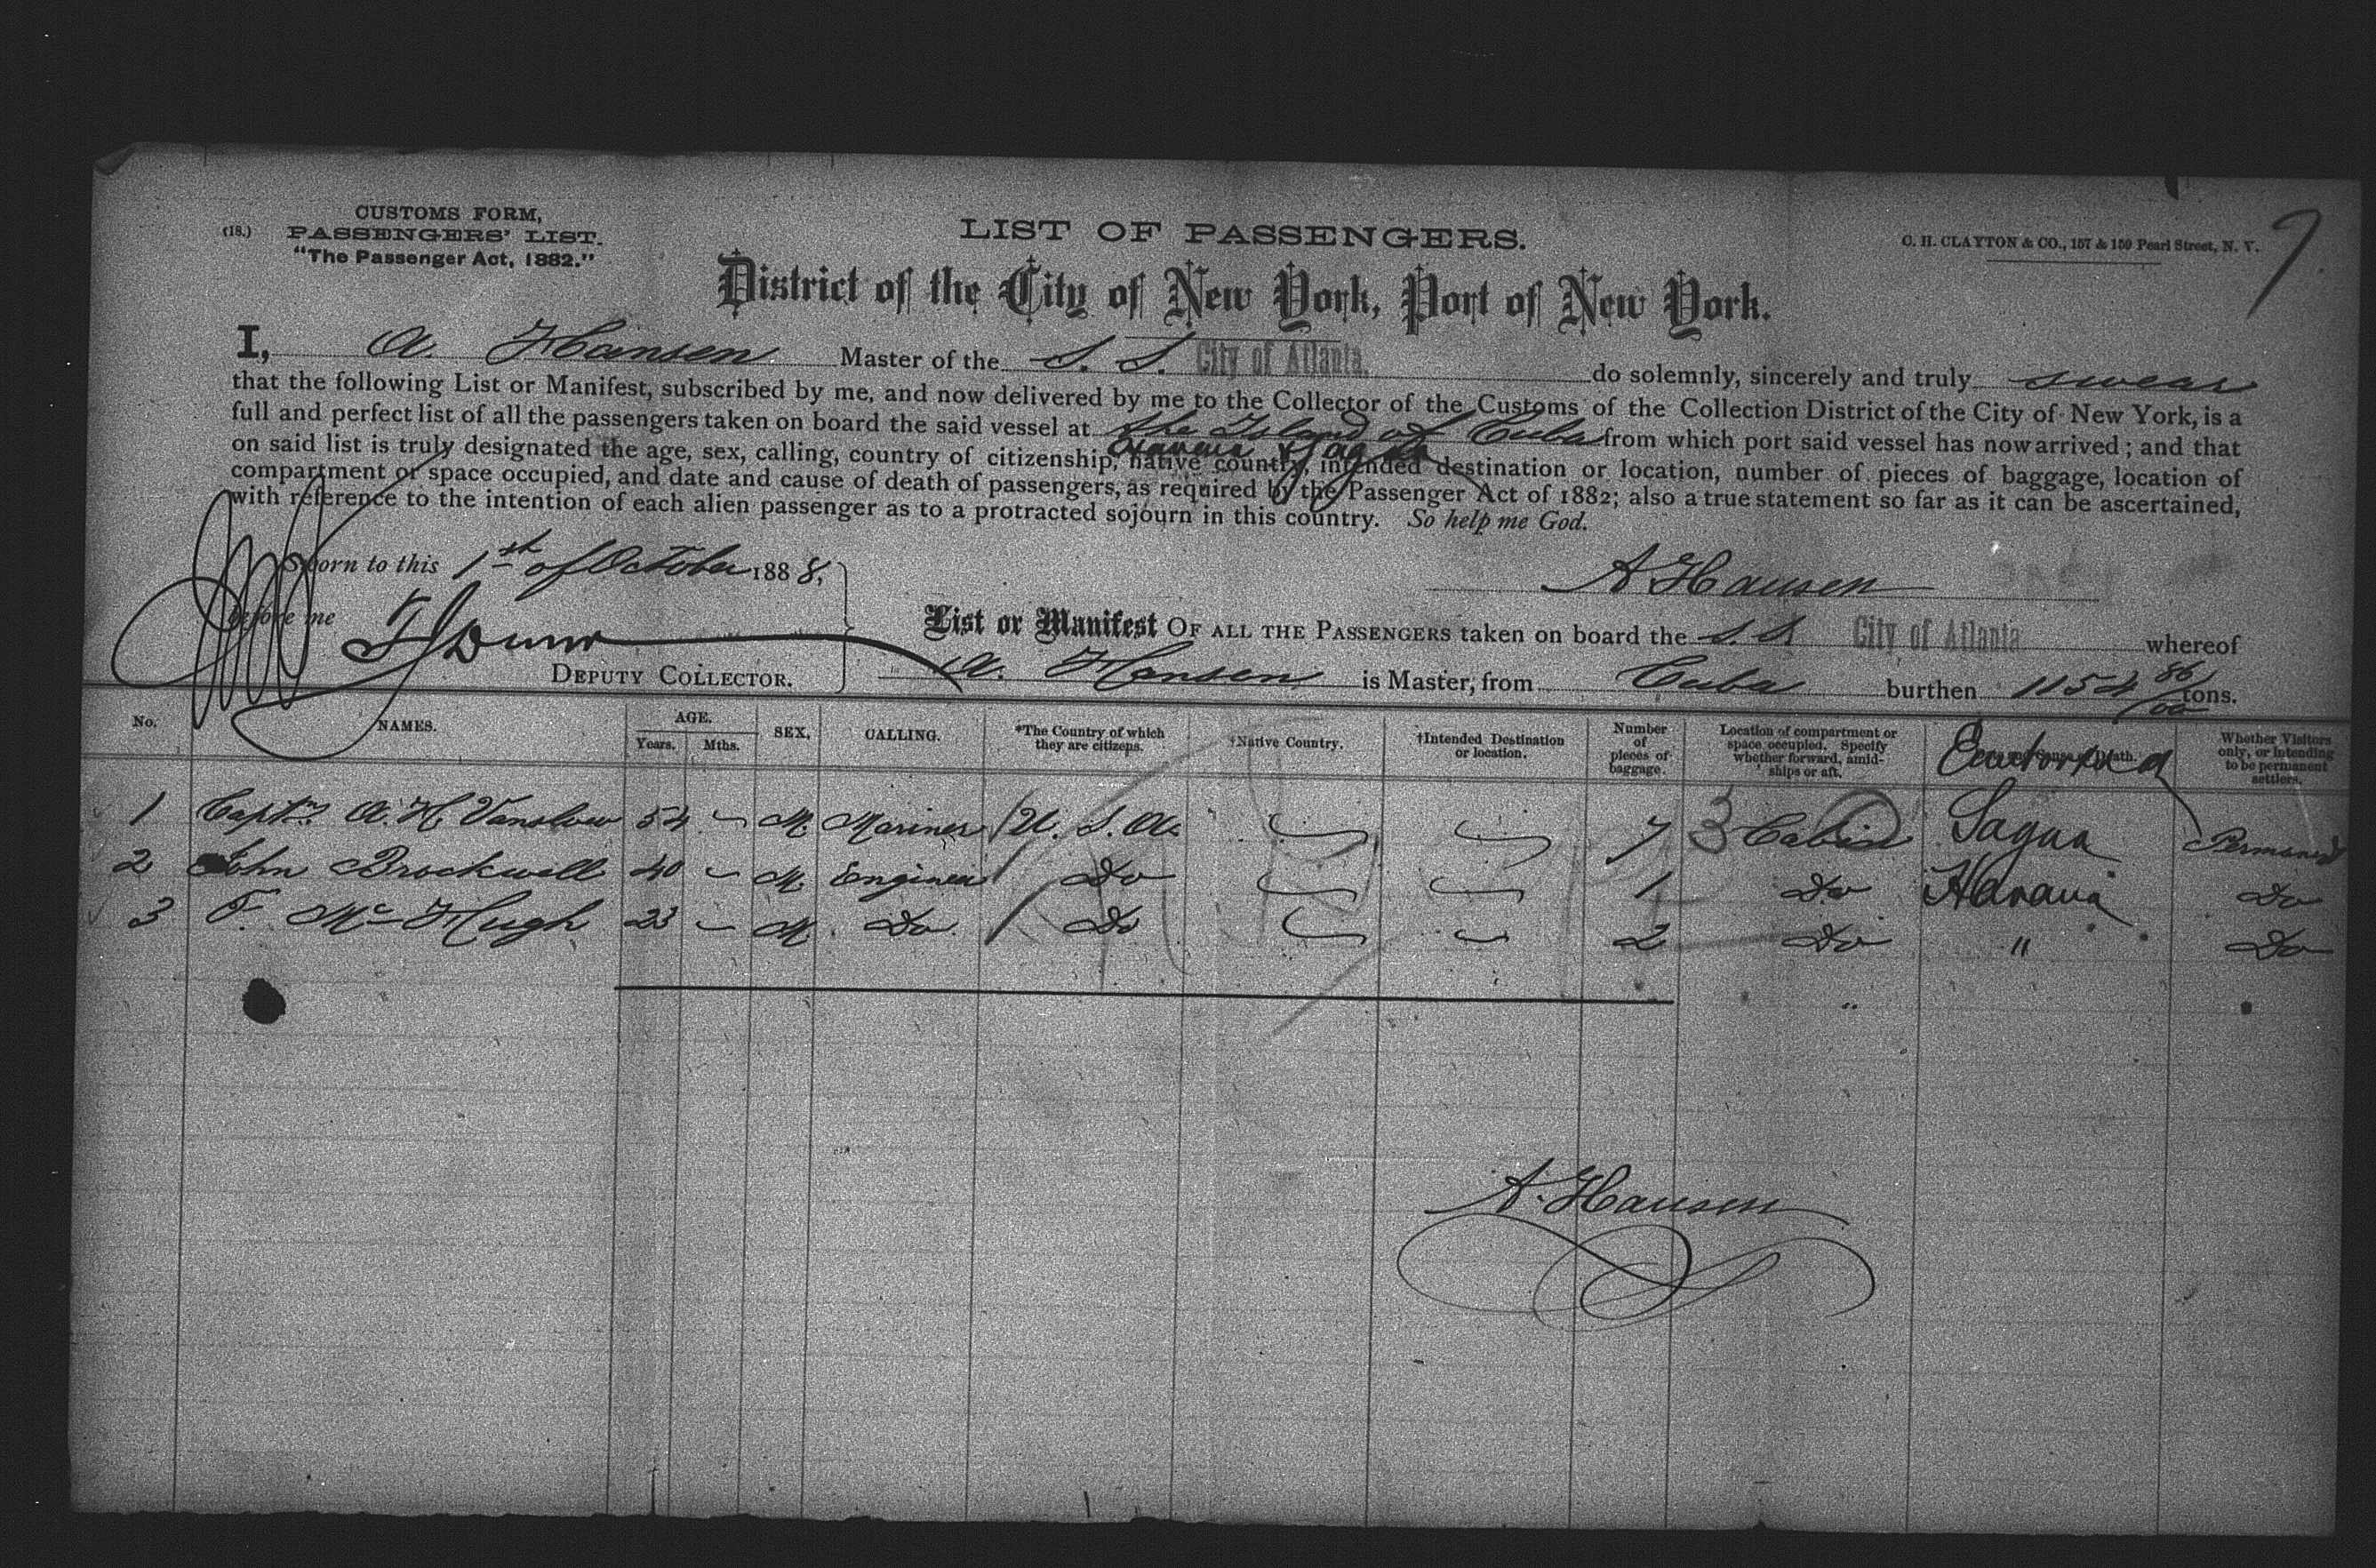 CUSTOMS FORM,
(18.) PASSENGERS' LIST.
"The Passenger Act, 1882."
LIST OF PASSENGERS.
C. H. CLAYTON & CO., 157 & 159 Pearl Street, N. Y.
District of the City of New York, Port of New York.
I, A. Hansen Master of the S. S. City of Atlanta. do solemnly, sincerely and truly swear
that the following List or Manifest, subscribed by me, and now delivered by me to the Collector of the Customs of the Collection District of the City of New York, is a
full and perfect list of all the passengers taken on board the said vessel at the Island of Cuba from which port said vessel has now arrived; and that
Havana & Sagua
on said list is truly designated the age, sex, calling, country of citizenship, native country, intended destination or location, number of pieces of baggage, location of
compartment or space occupied, and date and cause of death of passengers, as required by the Passenger Act of 1882; also a true statement so far as it can be ascertained,
with reference to the intention of each alien passenger as to a protracted sojourn in this country. So help me God.
Sworn to this 1st of October 1888,
A Hansen
before me
List or Manifest OF ALL THE PASSENGERS taken on board the S. S. City of Atlanta whereof
DEPUTY COLLECTOR.
A. Hansen is Master, from Cuba burthen 1154 86/100 tons.
No. NAMES. AGE. Years. Mths. SEX. CALLING. *The Country of which they are citizens. †Native Country. †Intended Destination or location. Number of pieces of baggage. Location of compartment or space occupied. Specify whether forward, amidships or aft. Whether Visitors only, or intending to be permanent settlers.
1 Captn. A. H. 54 M. Mariner U. S. A. 7 3 Cabin Sagua Permanent
2 John Brockwell 40 M. Engineer Do 1 Do Havana Do
3 F. Mc Hugh 23 M. Do. Do 2 Do " Do
A. Hansen